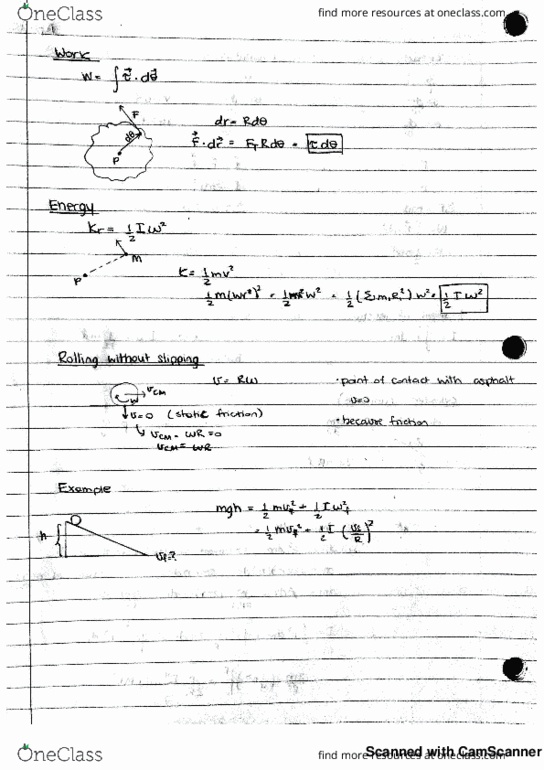 OneClass
find more resources at oneclass.com
Work
W = ∫ τ⃗ · dθ⃗
F
dθ
P
dr = Rdθ
F⃗ · dr⃗ = F_T Rdθ = τdθ
Energy
Kr = ½ I ω²
M
P
K = ½ mv²
½ m(ωr)² = ½ mr² ω² = ½ (Σ mᵢ Rᵢ²) ω² = ½ I ω²
Rolling without slipping
v = Rω
· point of contact with asphalt
v=0
ω
v_CM
v=0 (static friction)
· because friction
v_CM - ωR = 0
v_CM = ωR
Example
mgh = ½ mv_f² + ½ I ω_f²
= ½ mv_f² + ½ I (v_f/R)²
h
v_f=?
OneClass
find more resources at oneclass.com
Scanned with CamScanner